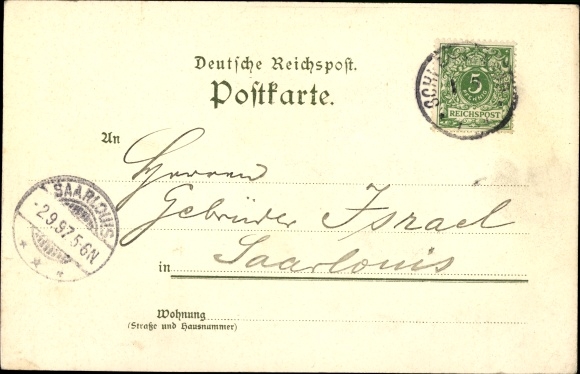 Deutsche Reichspost.
Postkarte.
5
PFENNIG
REICHSPOST
An
Herren
Gebrüder Israel
in Saarlouis
SAARLOUIS
2.9.97.5-6N.
Wohnung
(Straße und Hausnummer)